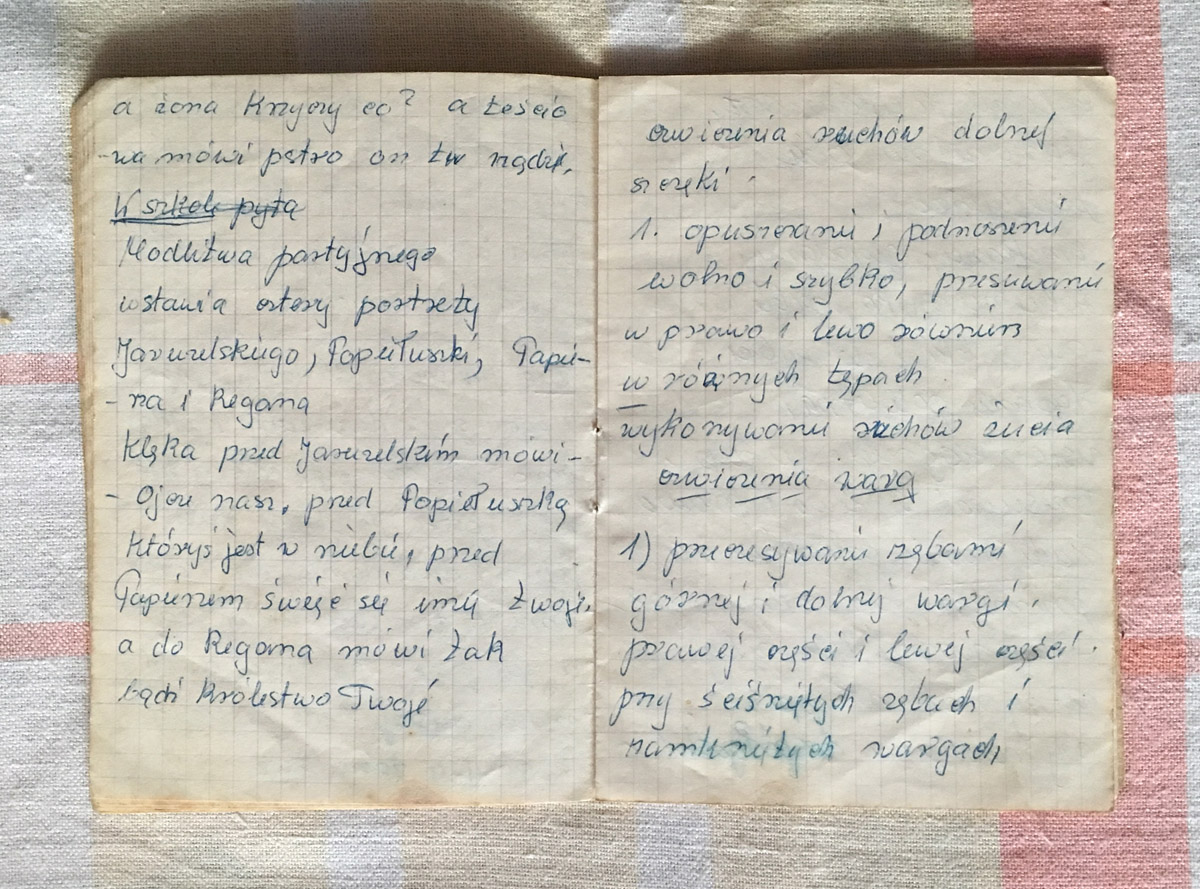 a żona Krzyczy co? a teścio
-wa mówi pstro on tu rządzi,
W szkole pyta
Modlitwa partyjnego
wstawia cztery portrety
Jaruzelskiego, Popiełuszki, Papie-
- ża i Regana
Klęka przed Jaruzelskim mówi -
- Ojcze nasz, przed Popiełuszką
któryś jest w niebie, przed
Papieżem święć się imię twoje,
a do Regana mówi tak
bądź Królestwo Twoje
ćwiczenia ruchów dolnej
szczęki.
1. opuszczanie i podnoszenie
wolno i szybko, przesuwanie
w prawo i lewo również
w różnych tępach
wykonywanie ruchów żucia
ćwiczenia warg
1) przeczesywanie zębami
górnej i dolnej wargi.
prawej części i lewej części.
przy ściśniętych zębach i
zamkniętych wargach